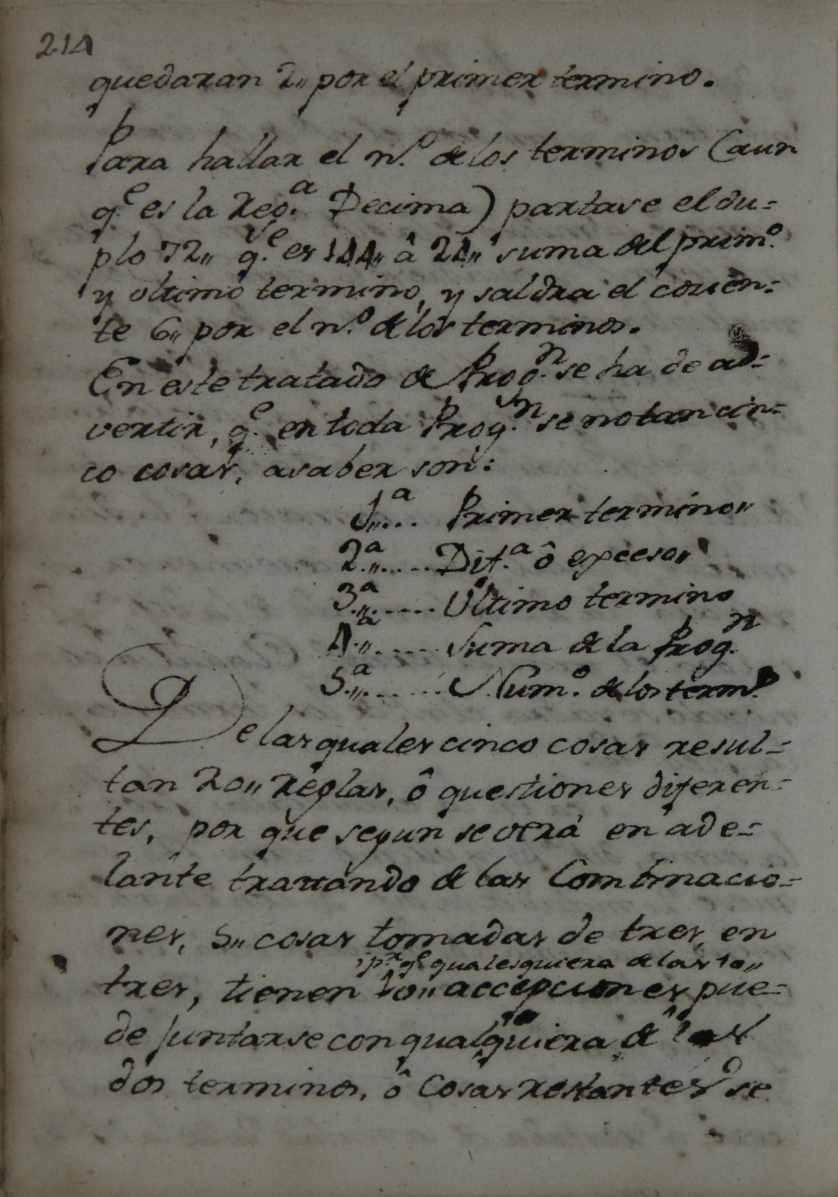 214
quedaran 2,, por el primer termino.
Para hallar el n.º de los terminos (aun
q.e es la Reg.a Decima) partase el du=
plo 72,, q.e es 144,, â 24,, suma del prim.º
y ultimo termino, y saldra el cocien=
te 6,, por el n.º de los terminos.
En este tratado de Prog.n se ha de ad=
vertir, q.e en toda Prog.n se notan cin=
co cosas, asaber son:
1,,a.... Primer termino,,
2.a,,..... Dif.a ô exceso,,
3.a,,...... Ultimo termino
4.a,,..... Suma de la Prog.n
5.a,,...... Num.º de los term.s
De las quales cinco cosas resul=
tan 20,, Reglas, ô questiones diferen=
tes, por que segun se verá en ade=
lante trattando de las Combinacio=
nes, 5,, cosas tomadas de tres, en
pr. q.e qualesquiera de las 10,,
tres, tienen 10,, accepciones pue=
de juntarse con qualquiera de las
dos terminos, ô Cosas restantes de